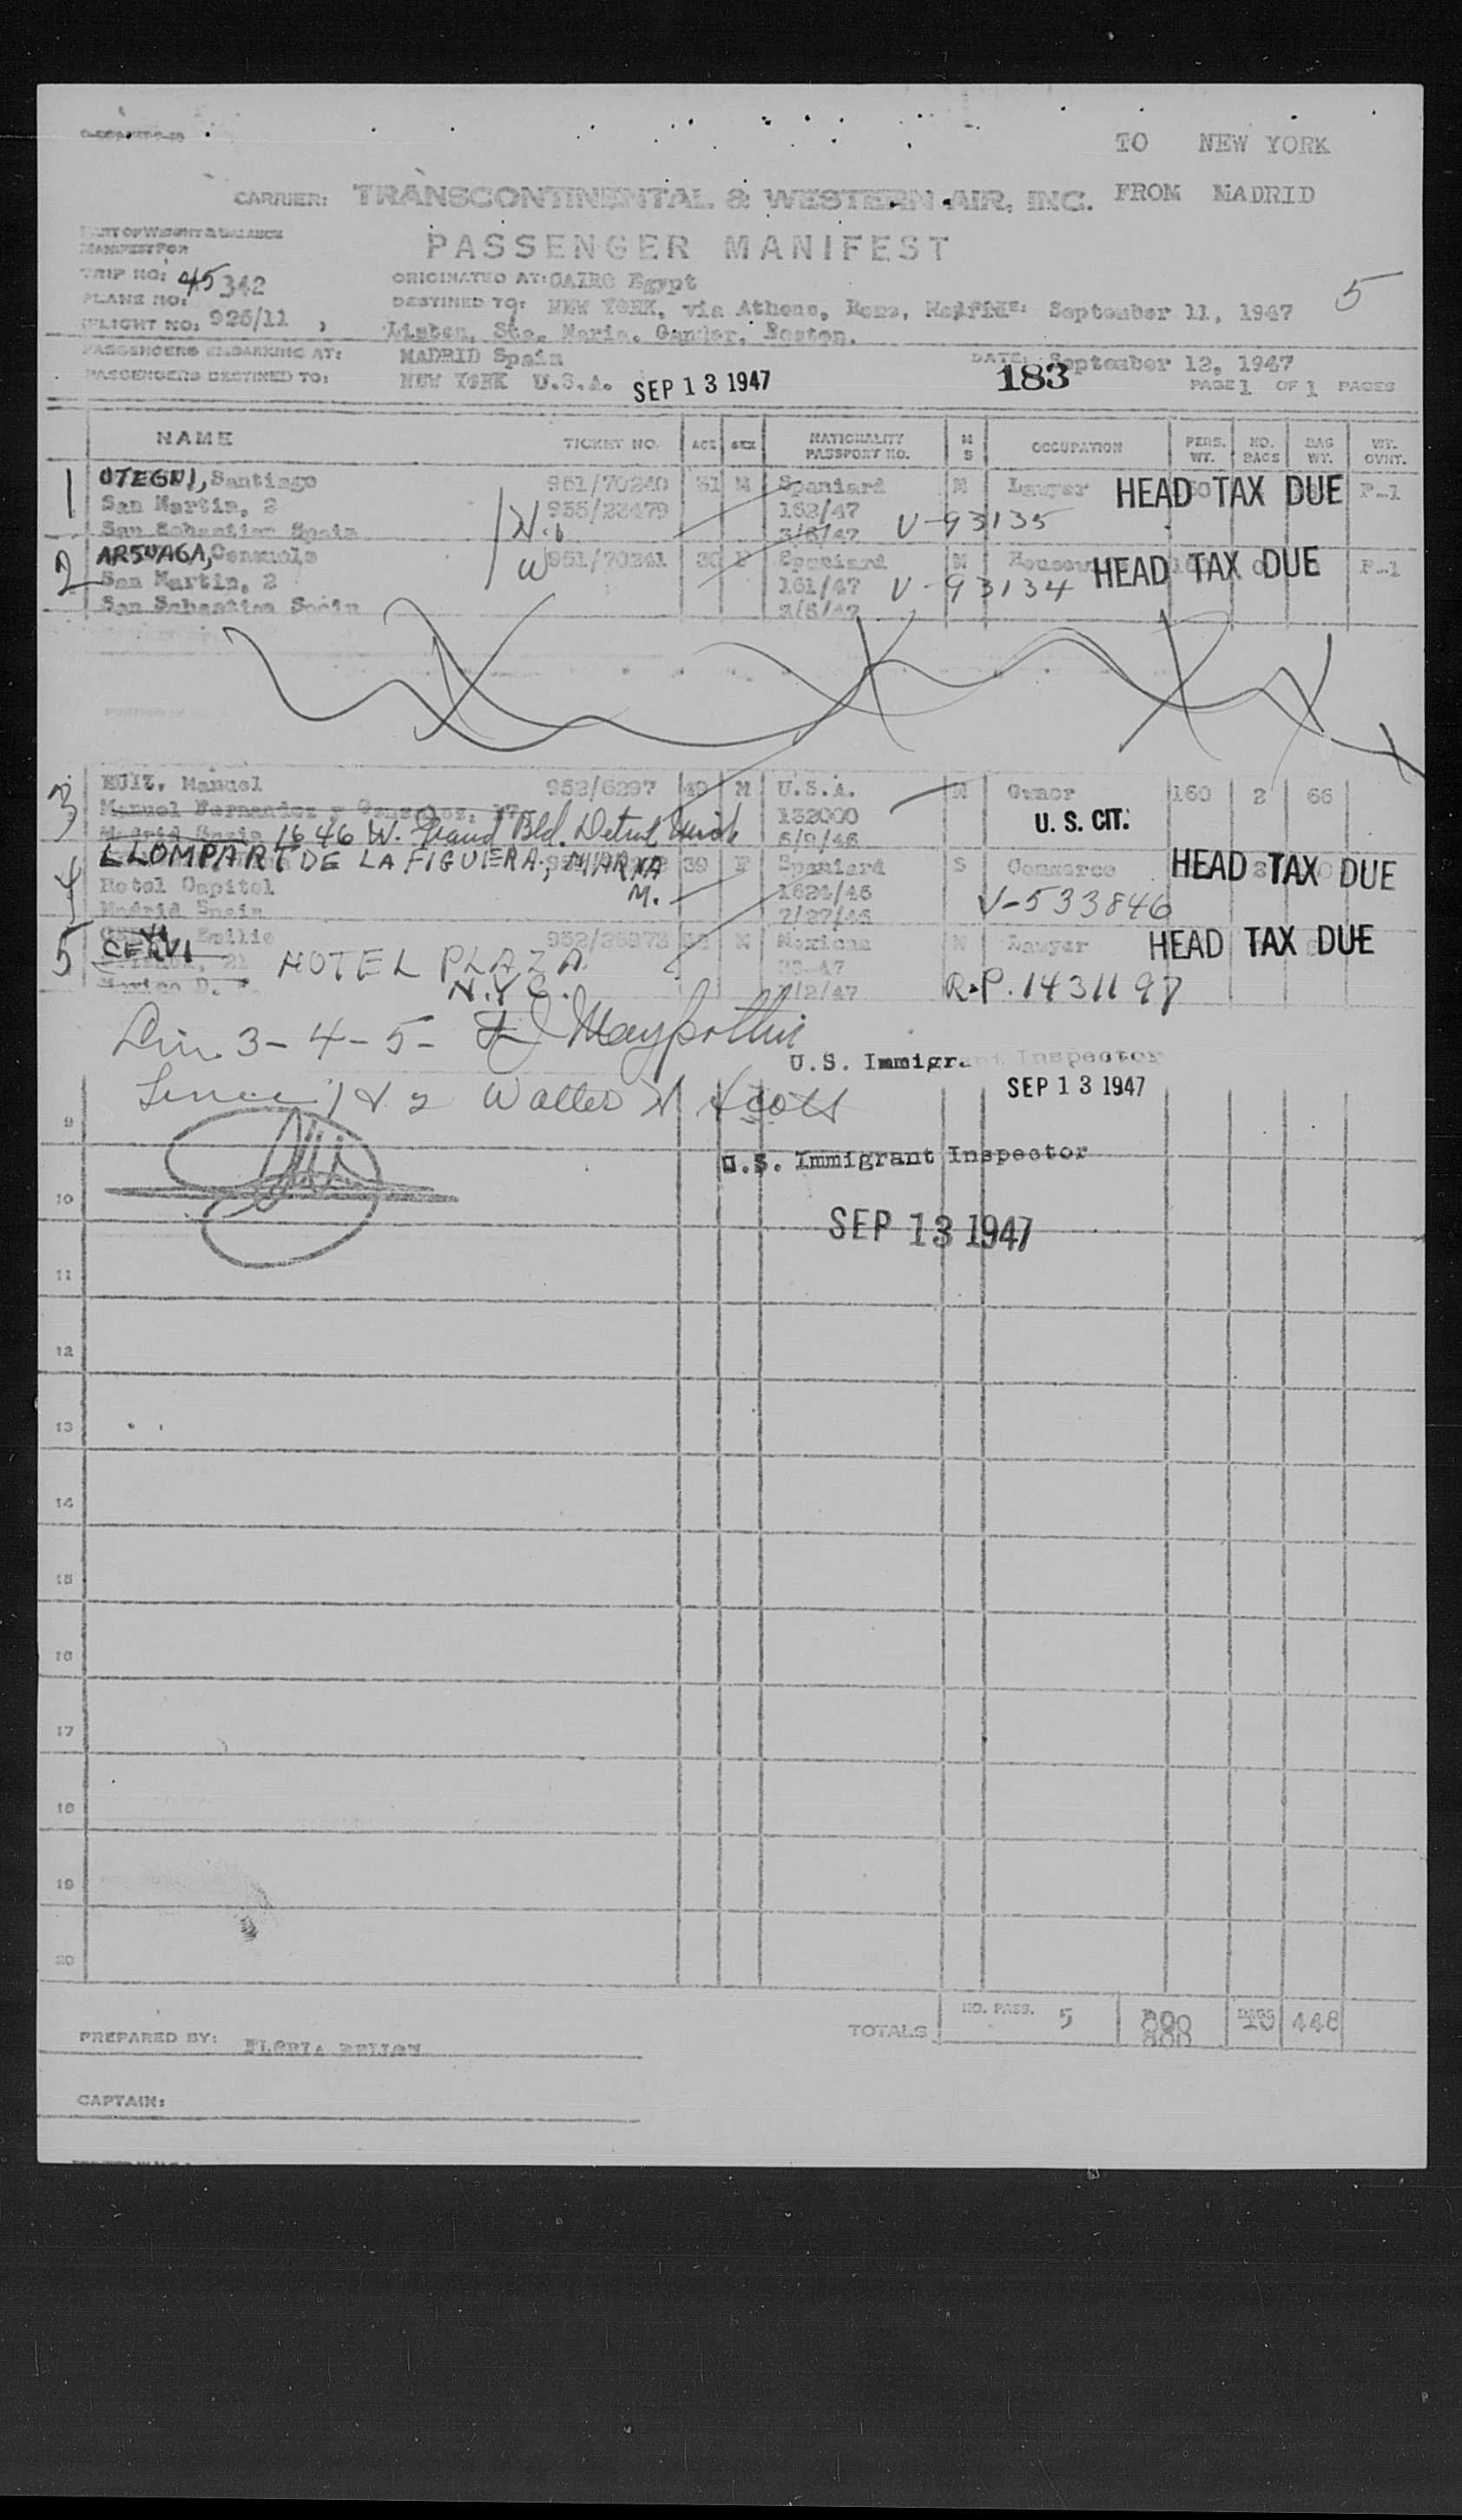 TO NEW YORK
CARRIER: TRANSCONTINENTAL & WESTERN AIR, INC. FROM MADRID
PART OF WEIGHT & BALANCE
MANIFEST FOR
PASSENGER MANIFEST
TRIP NO: 45342
ORIGINATED AT: CAIRO Egypt
5
PLANE NO:
DESTINED TO: NEW YORK, via Athens, Rome, Madrid September 11, 1947
FLIGHT NO: 926/11
Lisbon, Sta. Maria. Gander, Boston.
PASSENGERS EMBARKING AT: MADRID Spain
DATE: September 12, 1947
PASSENGERS DESTINED TO: NEW YORK U.S.A. SEP 13 1947 183 PAGE 1 OF 1 PAGES
NAME TICKET NO. AGE SEX NATIONALITY PASSPORT NO. M S OCCUPATION PERS. WT. NO. BAGS BAG WT. WT. OVHT.
1 OTEGUI, Santiago 951/70240 31 M Spaniard M Lawyer HEAD TAX DUE P-1
San Martin, 2 955/23479 162/47 V-93135
San Sebastian Spain 3/6/47
2 ARSUAGA, Consuelo W 951/70241 30 F Spaniard M HEAD TAX DUE P-1
San Martin, 2 161/47 V-93134
San Sebastian Spain 3/6/47
3 RUIZ, Manuel 952/6297 49 M U.S.A. M Owner 160 2 66
Manuel Fernandez y Gonzalez, 17 132000 U. S. CIT.
Madrid Spain 1646 W. Grand Bld. Detroit Mich 6/9/46
4 LLOMPART DE LA FIGUERA, MARIA 39 F Spaniard S Commerce HEAD TAX DUE
Hotel Capitol M. 1624/46 V-533846
Madrid Spain 7/27/46
5 CERVI Emilio 952/26973 M Mexican M Lawyer HEAD TAX DUE
HOTEL PLAZA
Mexico D. F. N.Y.C. /2/47 R.P. 1431197
3-4-5-
U.S. Immigrant Inspector
SEP 13 1947
1 & 2 Walter Scott
9
U.S. Immigrant Inspector
10
SEP 13 1947
11
12
13
14
15
16
17
18
19
20
TOTALS NO. PASS. 5 800 BAGS 448
PREPARED BY:
CAPTAIN: